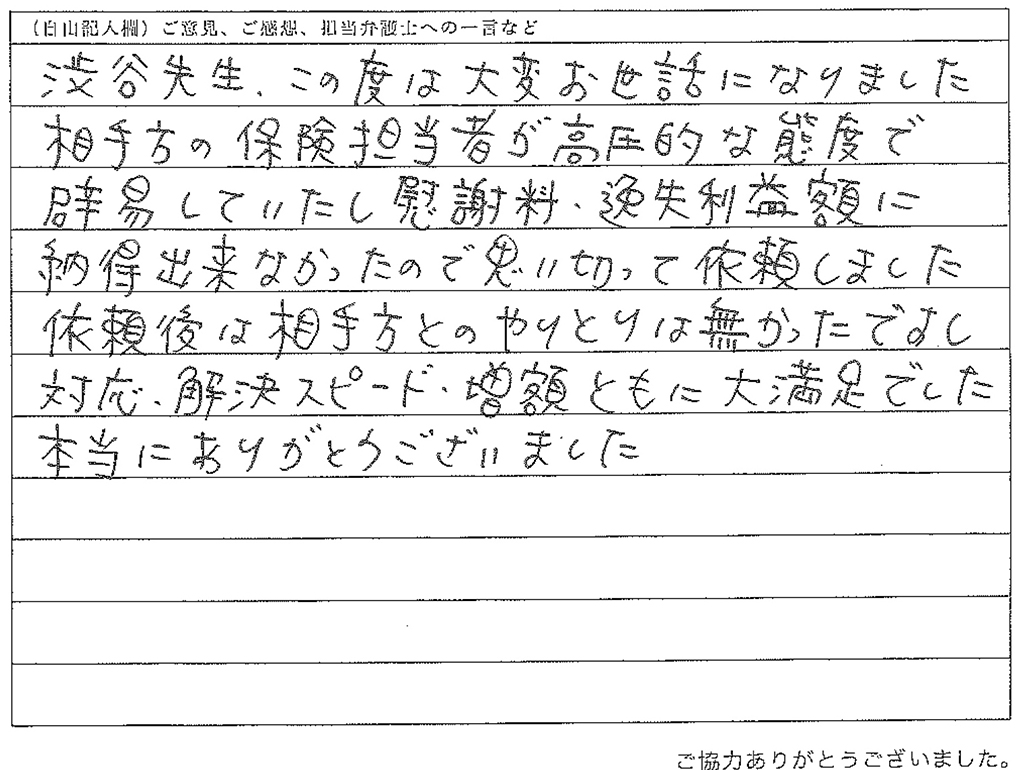 （自由記入欄）ご意見、ご感想、担当弁護士への一言など
渋谷先生、この度は大変お世話になりました
相手方の保険担当者が高圧的な態度で
辟易していたし慰謝料・逸失利益額に
納得出来なかったので思い切って依頼しました
依頼後は相手方とのやりとりは無かったですし
対応、解決スピード・増額ともに大満足でした
本当にありがとうございました
ご協力ありがとうございました。